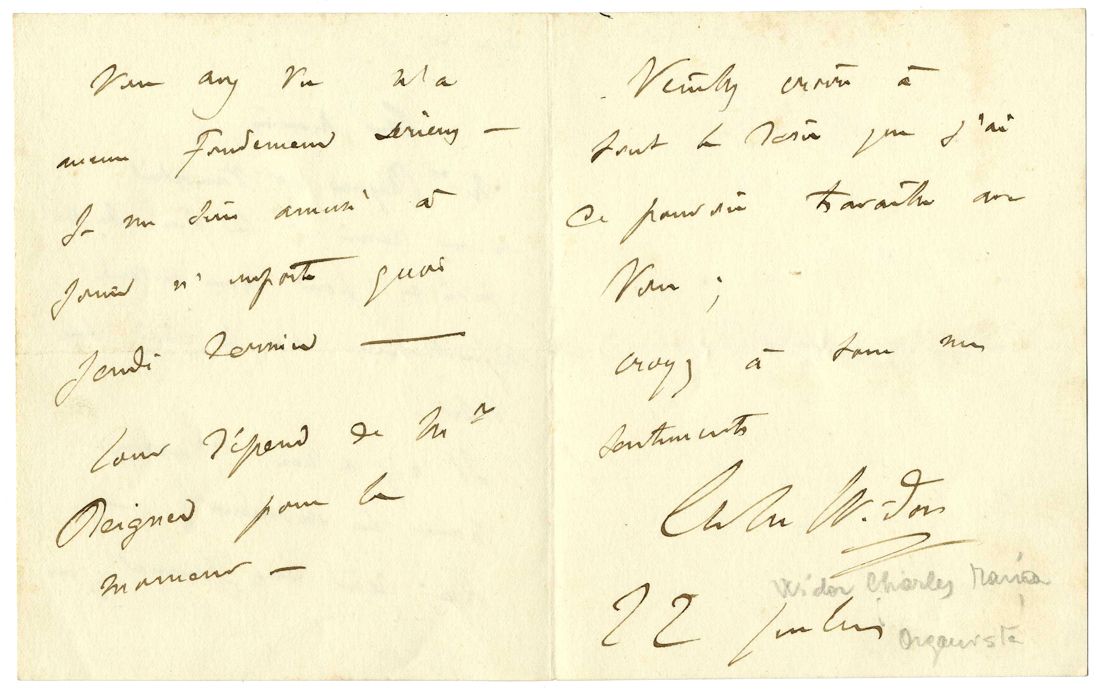 Vous avez vu n'a
aucun fondement sérieux —
Je me suis amusé à
jouer n'importe quoi
Jeudi dernier —
Tout dépend de Mr
Reignier pour le
moment —
Veuillez croire à
tout le désir que j'ai
de pouvoir travailler avec
Vous ;
croyez à tous mes
sentiments
Ch M Widor
22 juillet
Widor Charles Maria
Organista